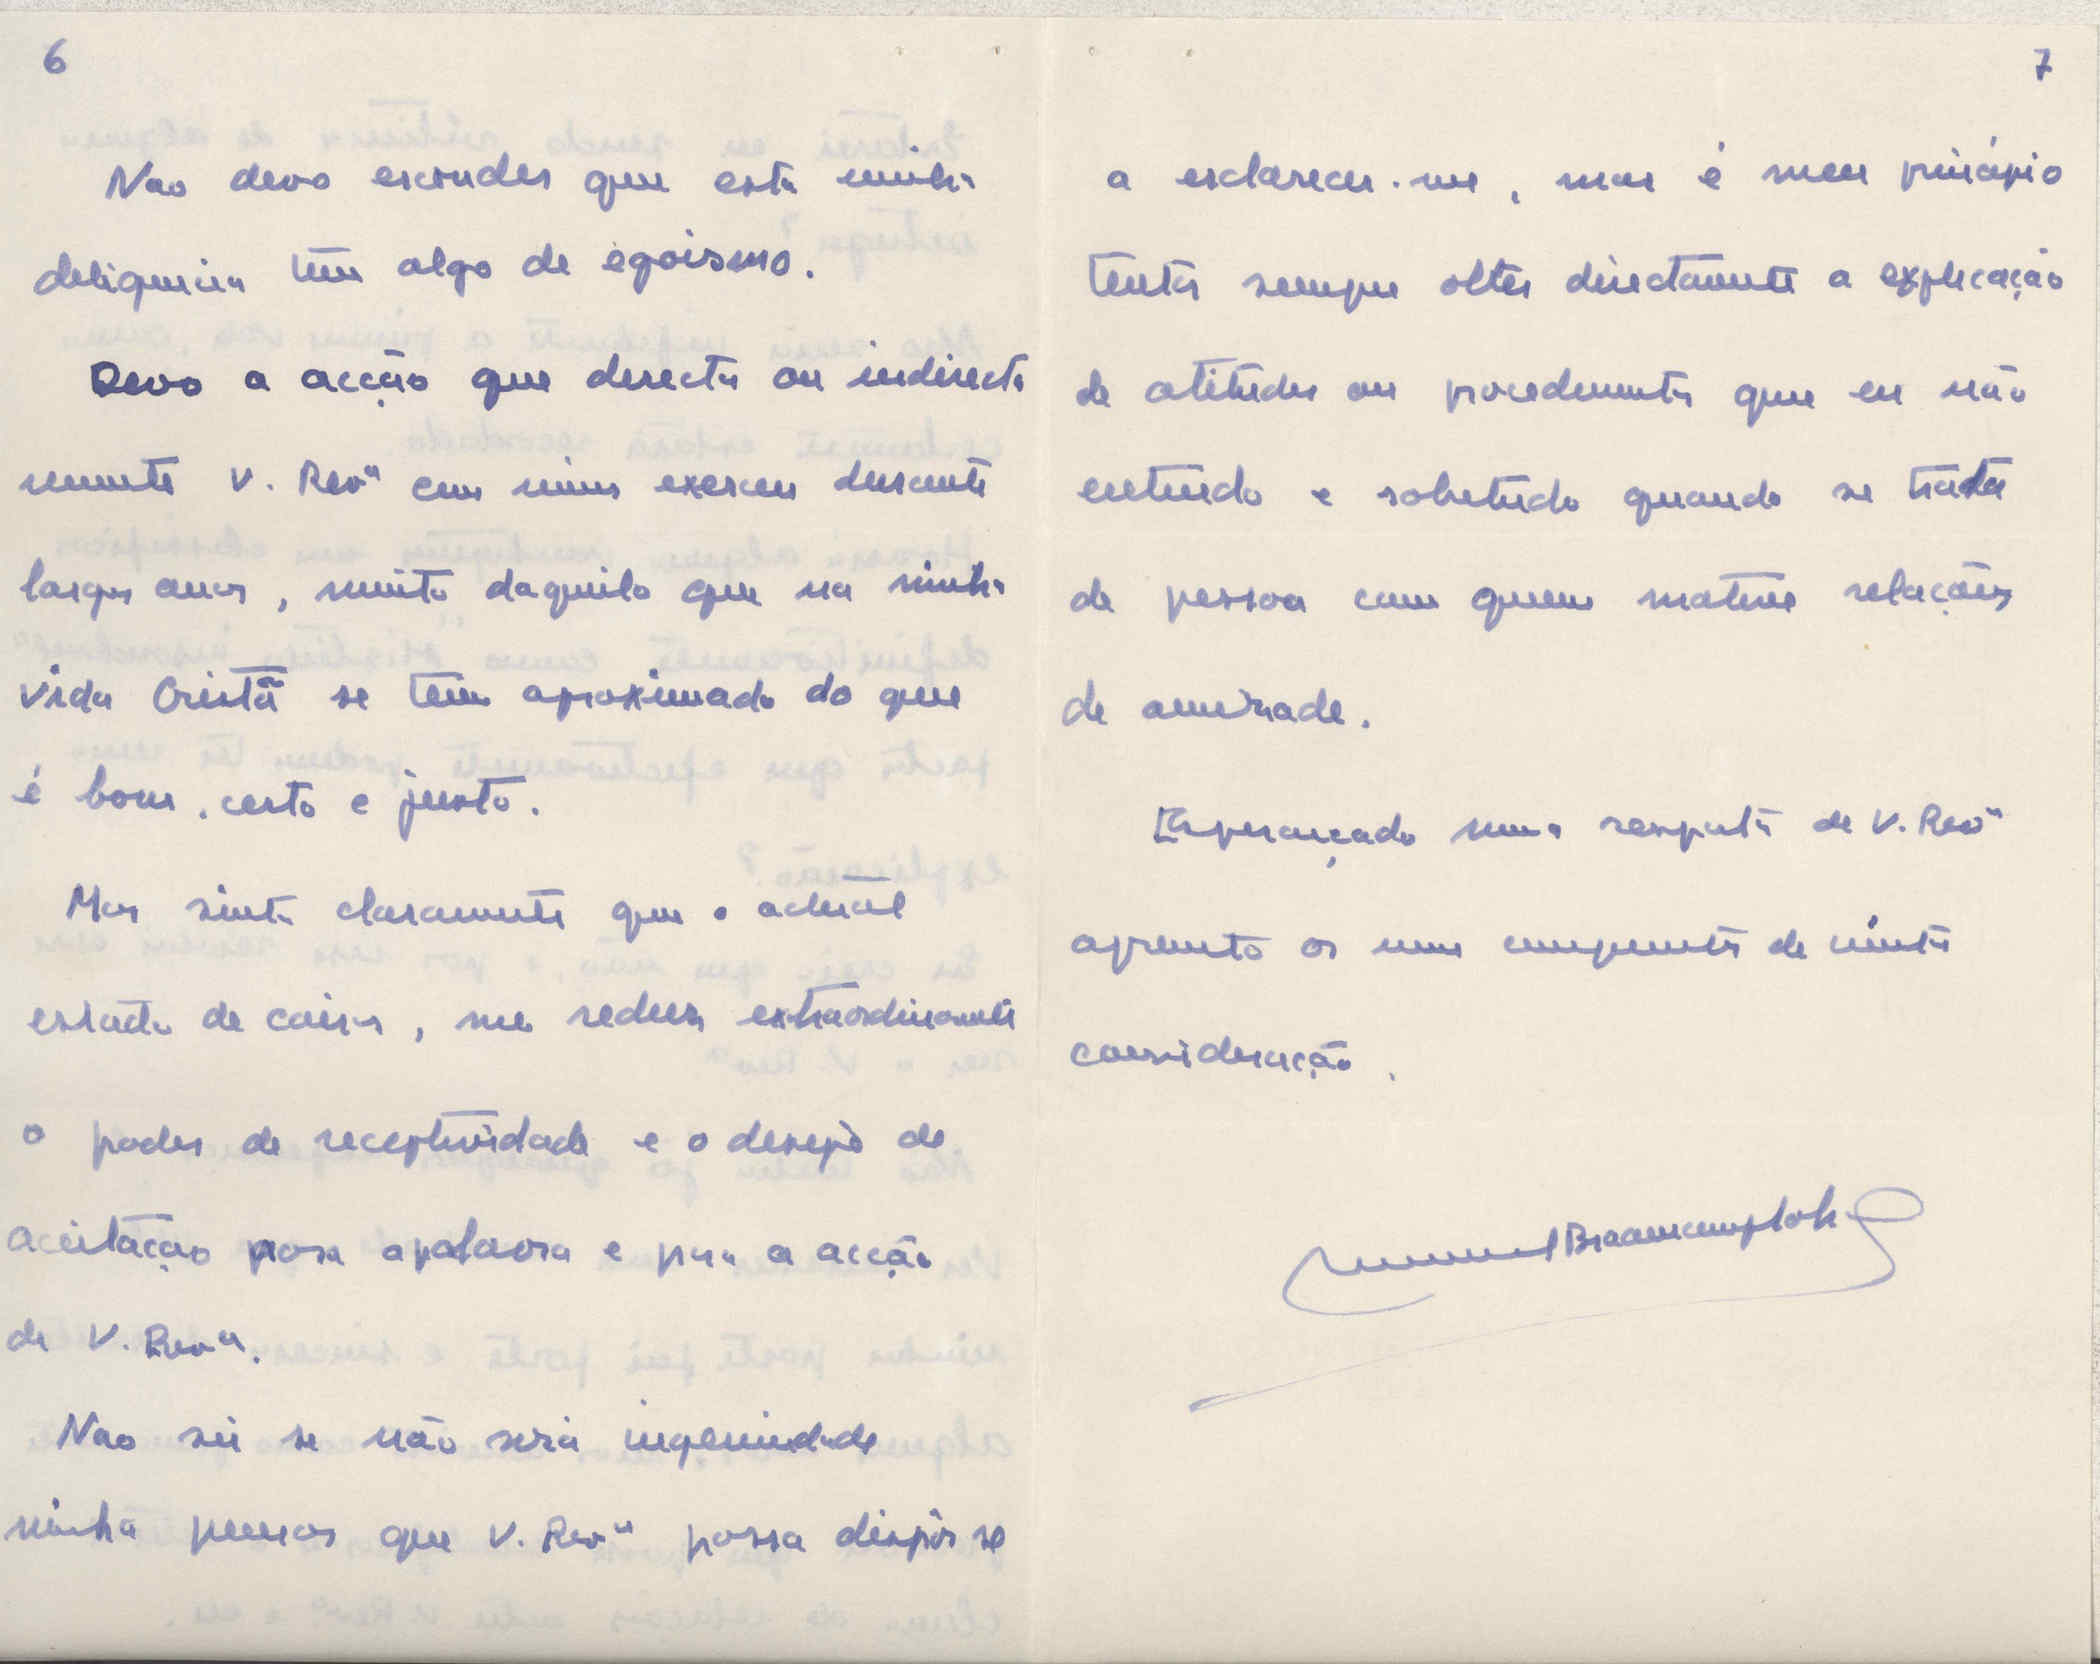 6
Nao devo esconder que esta minha
deligencia tem algo de egoismo.
Devo a acção que directa ou indirecta
mente V. Revª em mim exerceu durante
largos anos, muito daquilo que na minha
vida Cristã se tem aproximado do que
é bom, certo e justo.
Mas sinto claramente que o actual
estado de coisas, me reduz extraordinariamente
o poder de receptividade e o desejo de
aceitação para a palavra e para a acção
de V. Revª.
Nao sei se não será ingenuidade
minha pensar que V. Revª possa dispôr se
7
a esclarecer-me, mas é meu principio
tentar sempre obter directamente a explicação
de atitudes ou procedimentos que eu não
entendo e sobretudo quando se trata
de pessoa com quem mative relações
de amizade.
Esperançado numa resposta de V. Revª
apresento os meus cumprimentos de muita
consideração.
Manuel Braamcamp